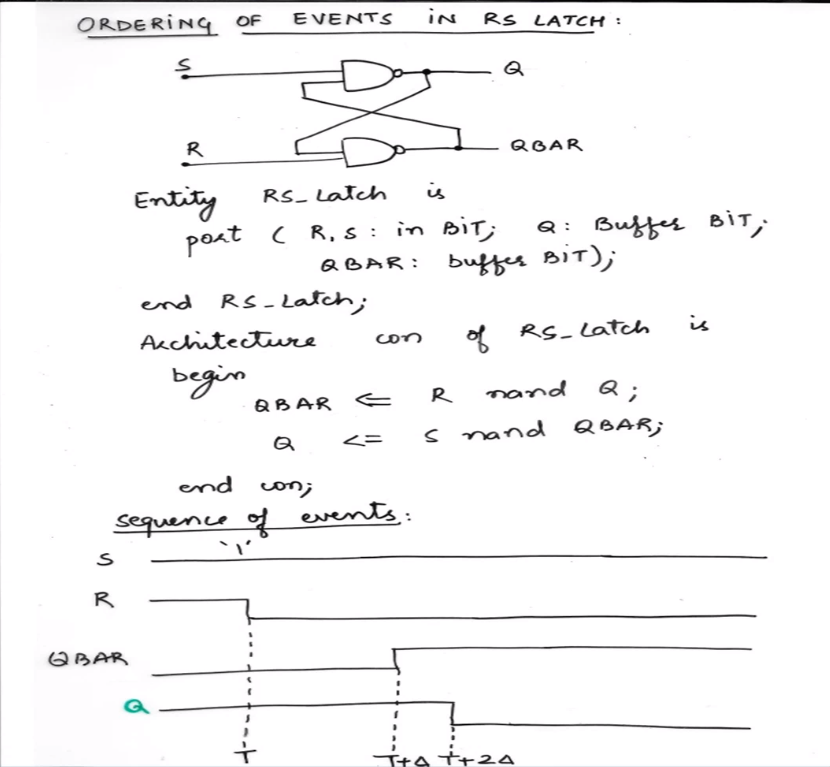 ORDERING OF EVENTS IN RS LATCH :
S
Q
R
QBAR
Entity RS_Latch is
port ( R, S : in BIT; Q : Buffer BIT;
QBAR : buffer BIT);
end RS_Latch;
Architecture con of RS_Latch is
begin
QBAR <= R nand Q ;
Q <= S nand QBAR;
end con;
sequence of events :
'1'
S
R
QBAR
Q
T T+Δ T+2Δ